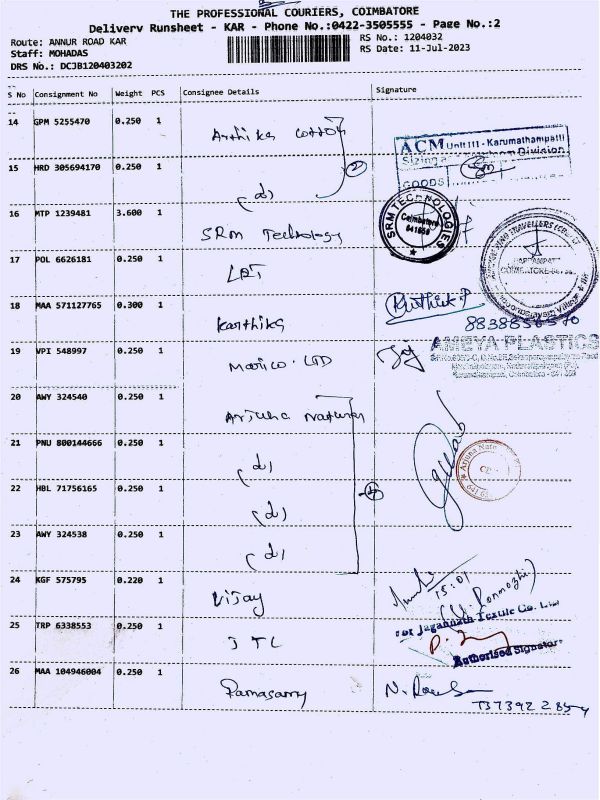 THE PROFESSIONAL COURIERS, COIMBATORE
Delivery Runsheet - KAR - Phone No.:0422-3505555 - Page No.:2
Route: ANNUR ROAD KAR
RS No.: 1204032
Staff: MOHADAS
RS Date: 11-Jul-2023
DRS No.: DCJB120403202
S No Consignment No Weight PCS Consignee Details Signature
14 GPM 5255470 0.250 1 Arthika Cotton
ACM Unit III - Karumathampatti
Sizing Division
GOODS
15 HRD 305694170 0.250 1 (d) 2
16 MTP 1239481 3.600 1 SRM Technology
SRM TECHNOLOGIES
Coimbatore
641659
17 POL 6626181 0.250 1
18 MAA 571127765 0.300 1 Karthika Karthick.P
19 VPI 548997 0.250 1 Marico. LTD
AMEYA PLASTICS
20 AWY 324540 0.250 1 Arjuna Natural
21 PNU 800144666 0.250 1 (d)
22 HBL 71756165 0.250 1 (d) 4
23 AWY 324538 0.250 1 (d)
24 KGF 575795 0.220 1 Vijay
15:01
(V. Ponmozhi)
For Jagannath Textile Co. Ltd
25 TRP 6338553 0.250 1 JTL
Authorised Signatory
26 MAA 104946004 0.250 1 Ramasamy